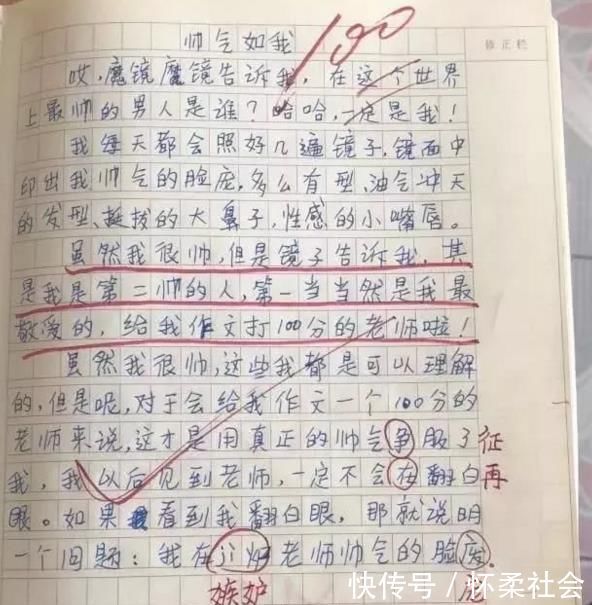 帅气如我
100
修正栏
哎,魔镜魔镜告诉我,在这个世界
上最帅的男人是谁?哈哈,一定是我!
我每天都会照好几遍镜子,镜面中
印出我帅气的脸庞,多么有型、油气冲天
的发型、挺拔的大鼻子,性感的小嘴唇。
虽然我很帅,但是镜子告诉我,其
是我是第二帅的人,第一当当然是我最
敬爱的,给我作文打100分的老师啦!
虽然我很帅,这些我都是可以理解
的,但是呢,对于会给我作文一个100分的
老师来说,这才是用真正的帅气争服了征
我,我以后见到老师,一定不会在翻白再
眼。如果看到我翻白眼,那就说明
一个问题:我在老师帅气的脸
嫉妒
快传号/怀柔社会